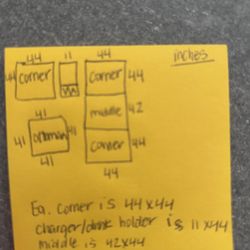 inches
44 11 44
44 corner corner 44
middle 42
41 ottoman 41 corner 44
41 44
Ea. corner is 44x44
charger/drink holder is 11x44
middle is 42x44